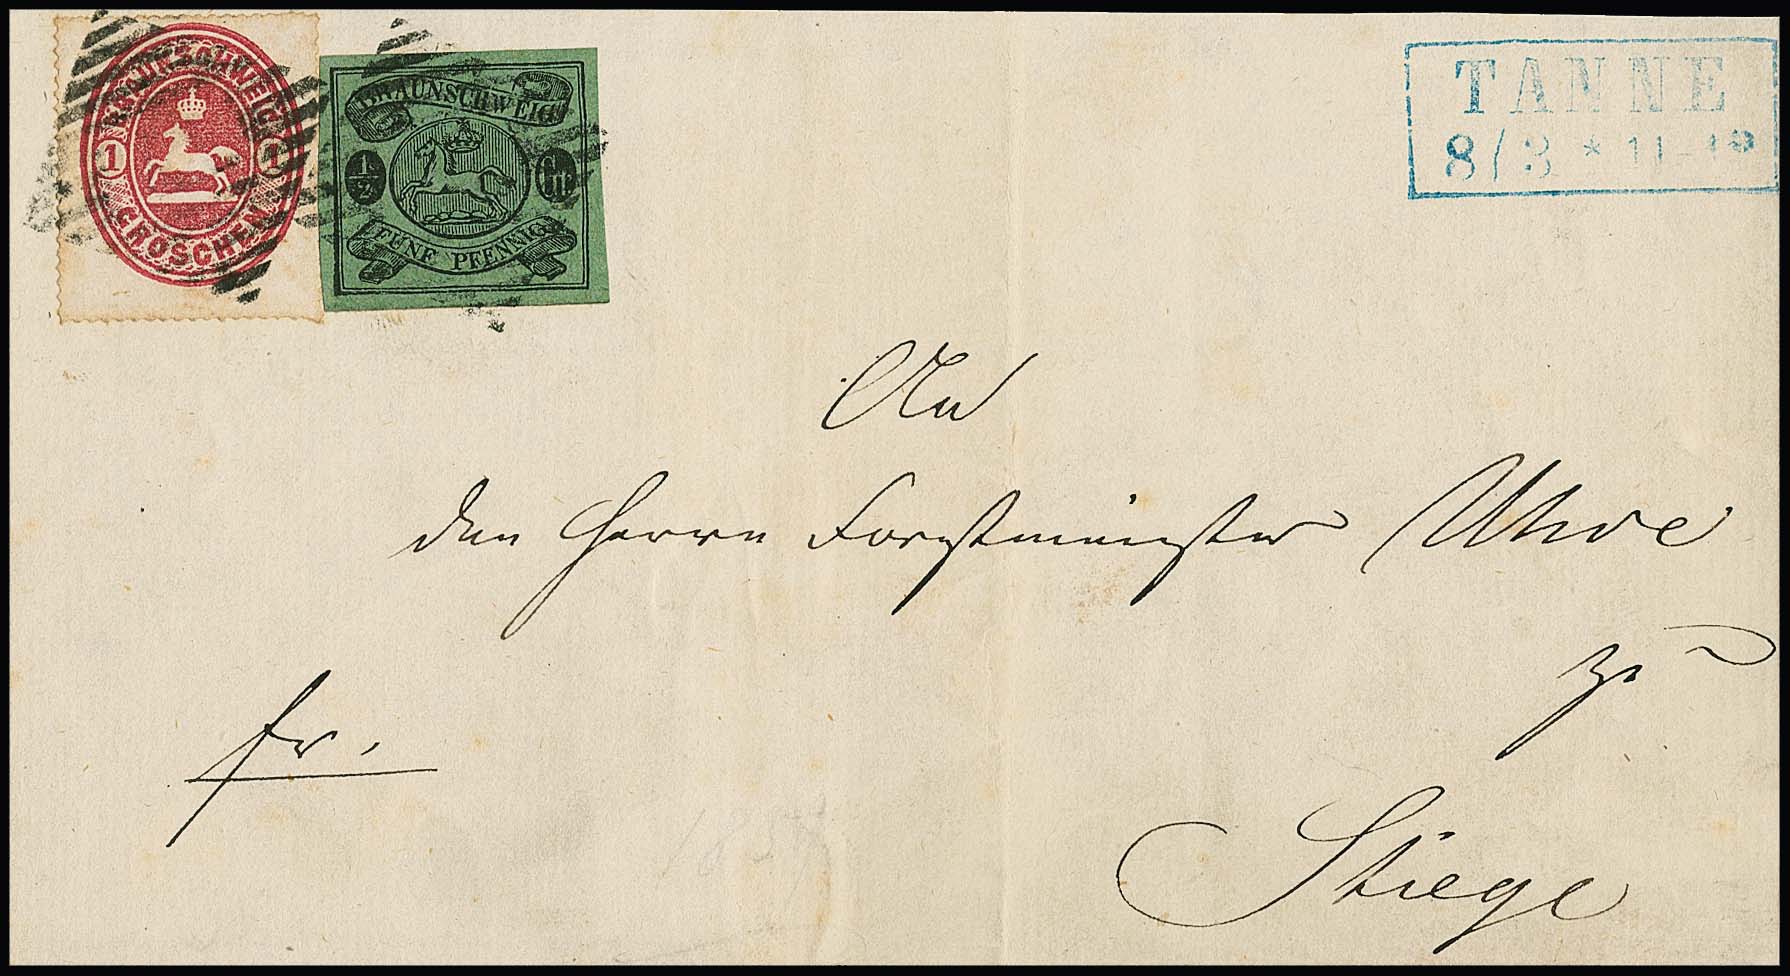 BRAUNSCHWEIG
1 1
GROSCHEN
BRAUNSCHWEIG
1/2 Gr
FÜNF PFENNIG
TANNE
8/3 * 11-12
An
den Herrn Forstmeister Uhde
zu
Stiege
fr.